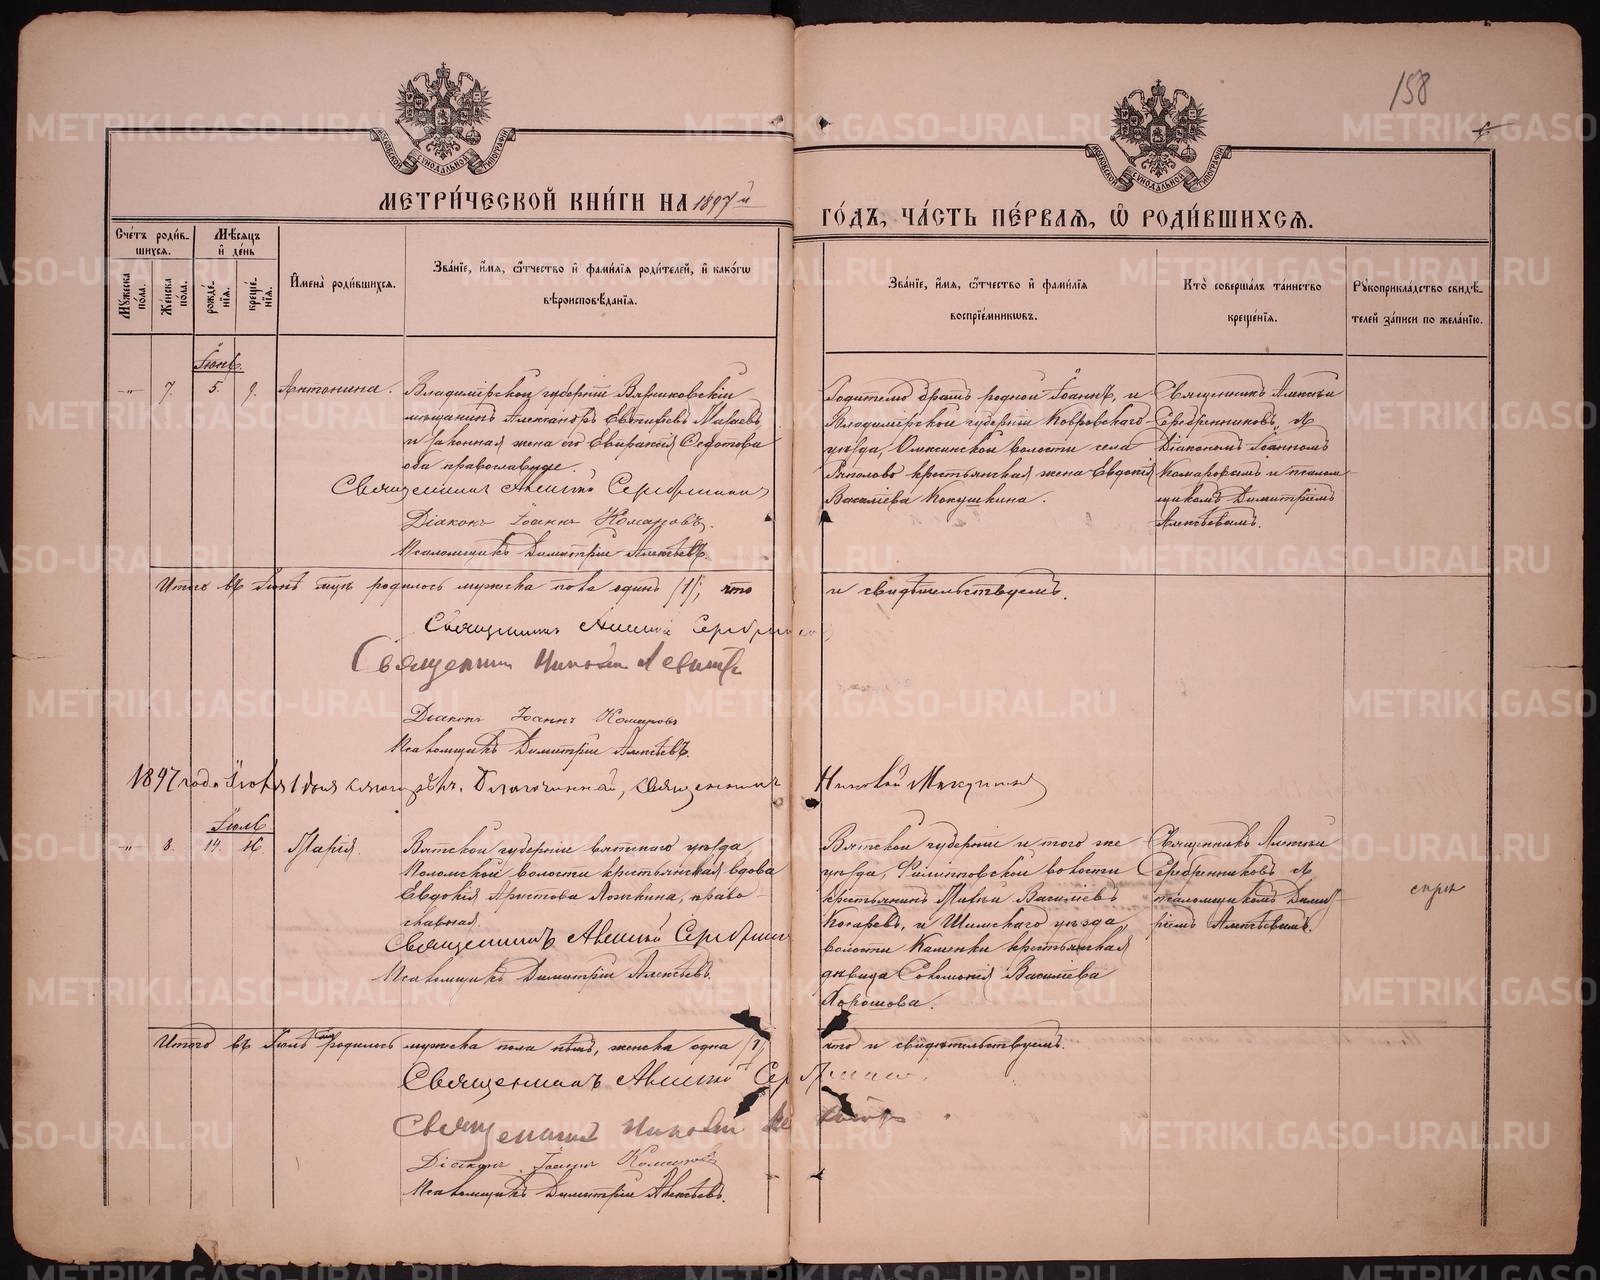 158
МОСКОВСКОЙ СѴНОДАЛЬНОЙ ТИПОГРАФІИ
МОСКОВСКОЙ СѴНОДАЛЬНОЙ ТИПОГРАФІИ
МЕТРИ́ЧЕСКОЙ КНИ́ГИ НА 1897й
ГО́ДЪ, ЧА́СТЬ ПЕ́РВАЯ, Ѡ҆ РОДИ́ВШИХСЯ.
Сче́тъ роди́вшихся.
Мꙋ́жеска по́ла.
Же́нска по́ла.
Мѣ́сяцъ и҆ де́нь
рожде́нїѧ.
креще́нїѧ.
И҆мена̀ роди́вшихся.
Зва́нїе, и҆́мя, ѻ҆́тчество и҆ фами́лїя роди́телей, и҆ како́гѡ
вѣроисповѣ́данїя.
Зва́нїе, и҆́мя, ѻ҆́тчество и҆ фами́лїя
воспрїе́мникѡвъ.
Кто̀ соверша́лъ та́инство
креще́нїя.
Рꙋкоприкла́дство свидѣ́телей за́писи по жела́нїю.
Іюнь.
7. 5. 9. Антонина.
Владимірской губерніи Вязниковскій
мѣщанинъ Александръ
и законная жена его Евпраксія Федотова
оба православные.
Священникъ Алексій Серебренниковъ
Діаконъ Іоаннъ Комаровъ.
Псаломщикъ Димитрій Алексѣевъ.
Родителю братъ родной Іоаннъ, и
Владимірской губерніи Ковровскаго
уѣзда, волости села
крестьянская жена Евдокія
Василіева Кокушкина.
Священникъ Алексій
Серебренниковъ съ
Діакономъ Іоанномъ
Комаровымъ и псаломщикомъ
Димитріемъ
Алексѣевымъ.
Итого въ Іюнѣ м-цѣ родилось мужска пола одинъ (1), что
и свидѣтельствуемъ.
Священникъ Алексій Серебренниковъ
Священникъ Николай Левитскій
Діаконъ Іоаннъ Комаровъ
Псаломщикъ Димитрій Алексѣевъ.
1897 года Іюля 1 дня Благочинный, священникъ Николай
Іюль
8. 14. 16. Марія.
Вятской губерніи вятскаго уѣзда,
волости крестьянская вдова
Евдокія Аристова Ложкина, православная.
Священникъ Алексій Серебренниковъ
Псаломщикъ Димитрій Алексѣевъ.
Вятской губерніи и того же
уѣзда, Филипповской волости
крестьянинъ Василіевъ
Косаревъ, и уѣзда,
волости Каменки крестьянская
дѣвица Соломонія Василіева
Хорошова.
Священникъ Алексій
Серебренниковъ съ
псаломщикомъ Димитріемъ
Алексѣевымъ.
Итого въ Іюлѣ м-цѣ родилось мужска пола нѣтъ, женска одна (1)
что и свидѣтельствуемъ.
Священникъ Алексій Серебренниковъ
Священникъ Николай
Діаконъ Іоаннъ Комаровъ
Псаломщикъ Димитрій Алексѣевъ.
METRIKI.GASO-URAL.RU